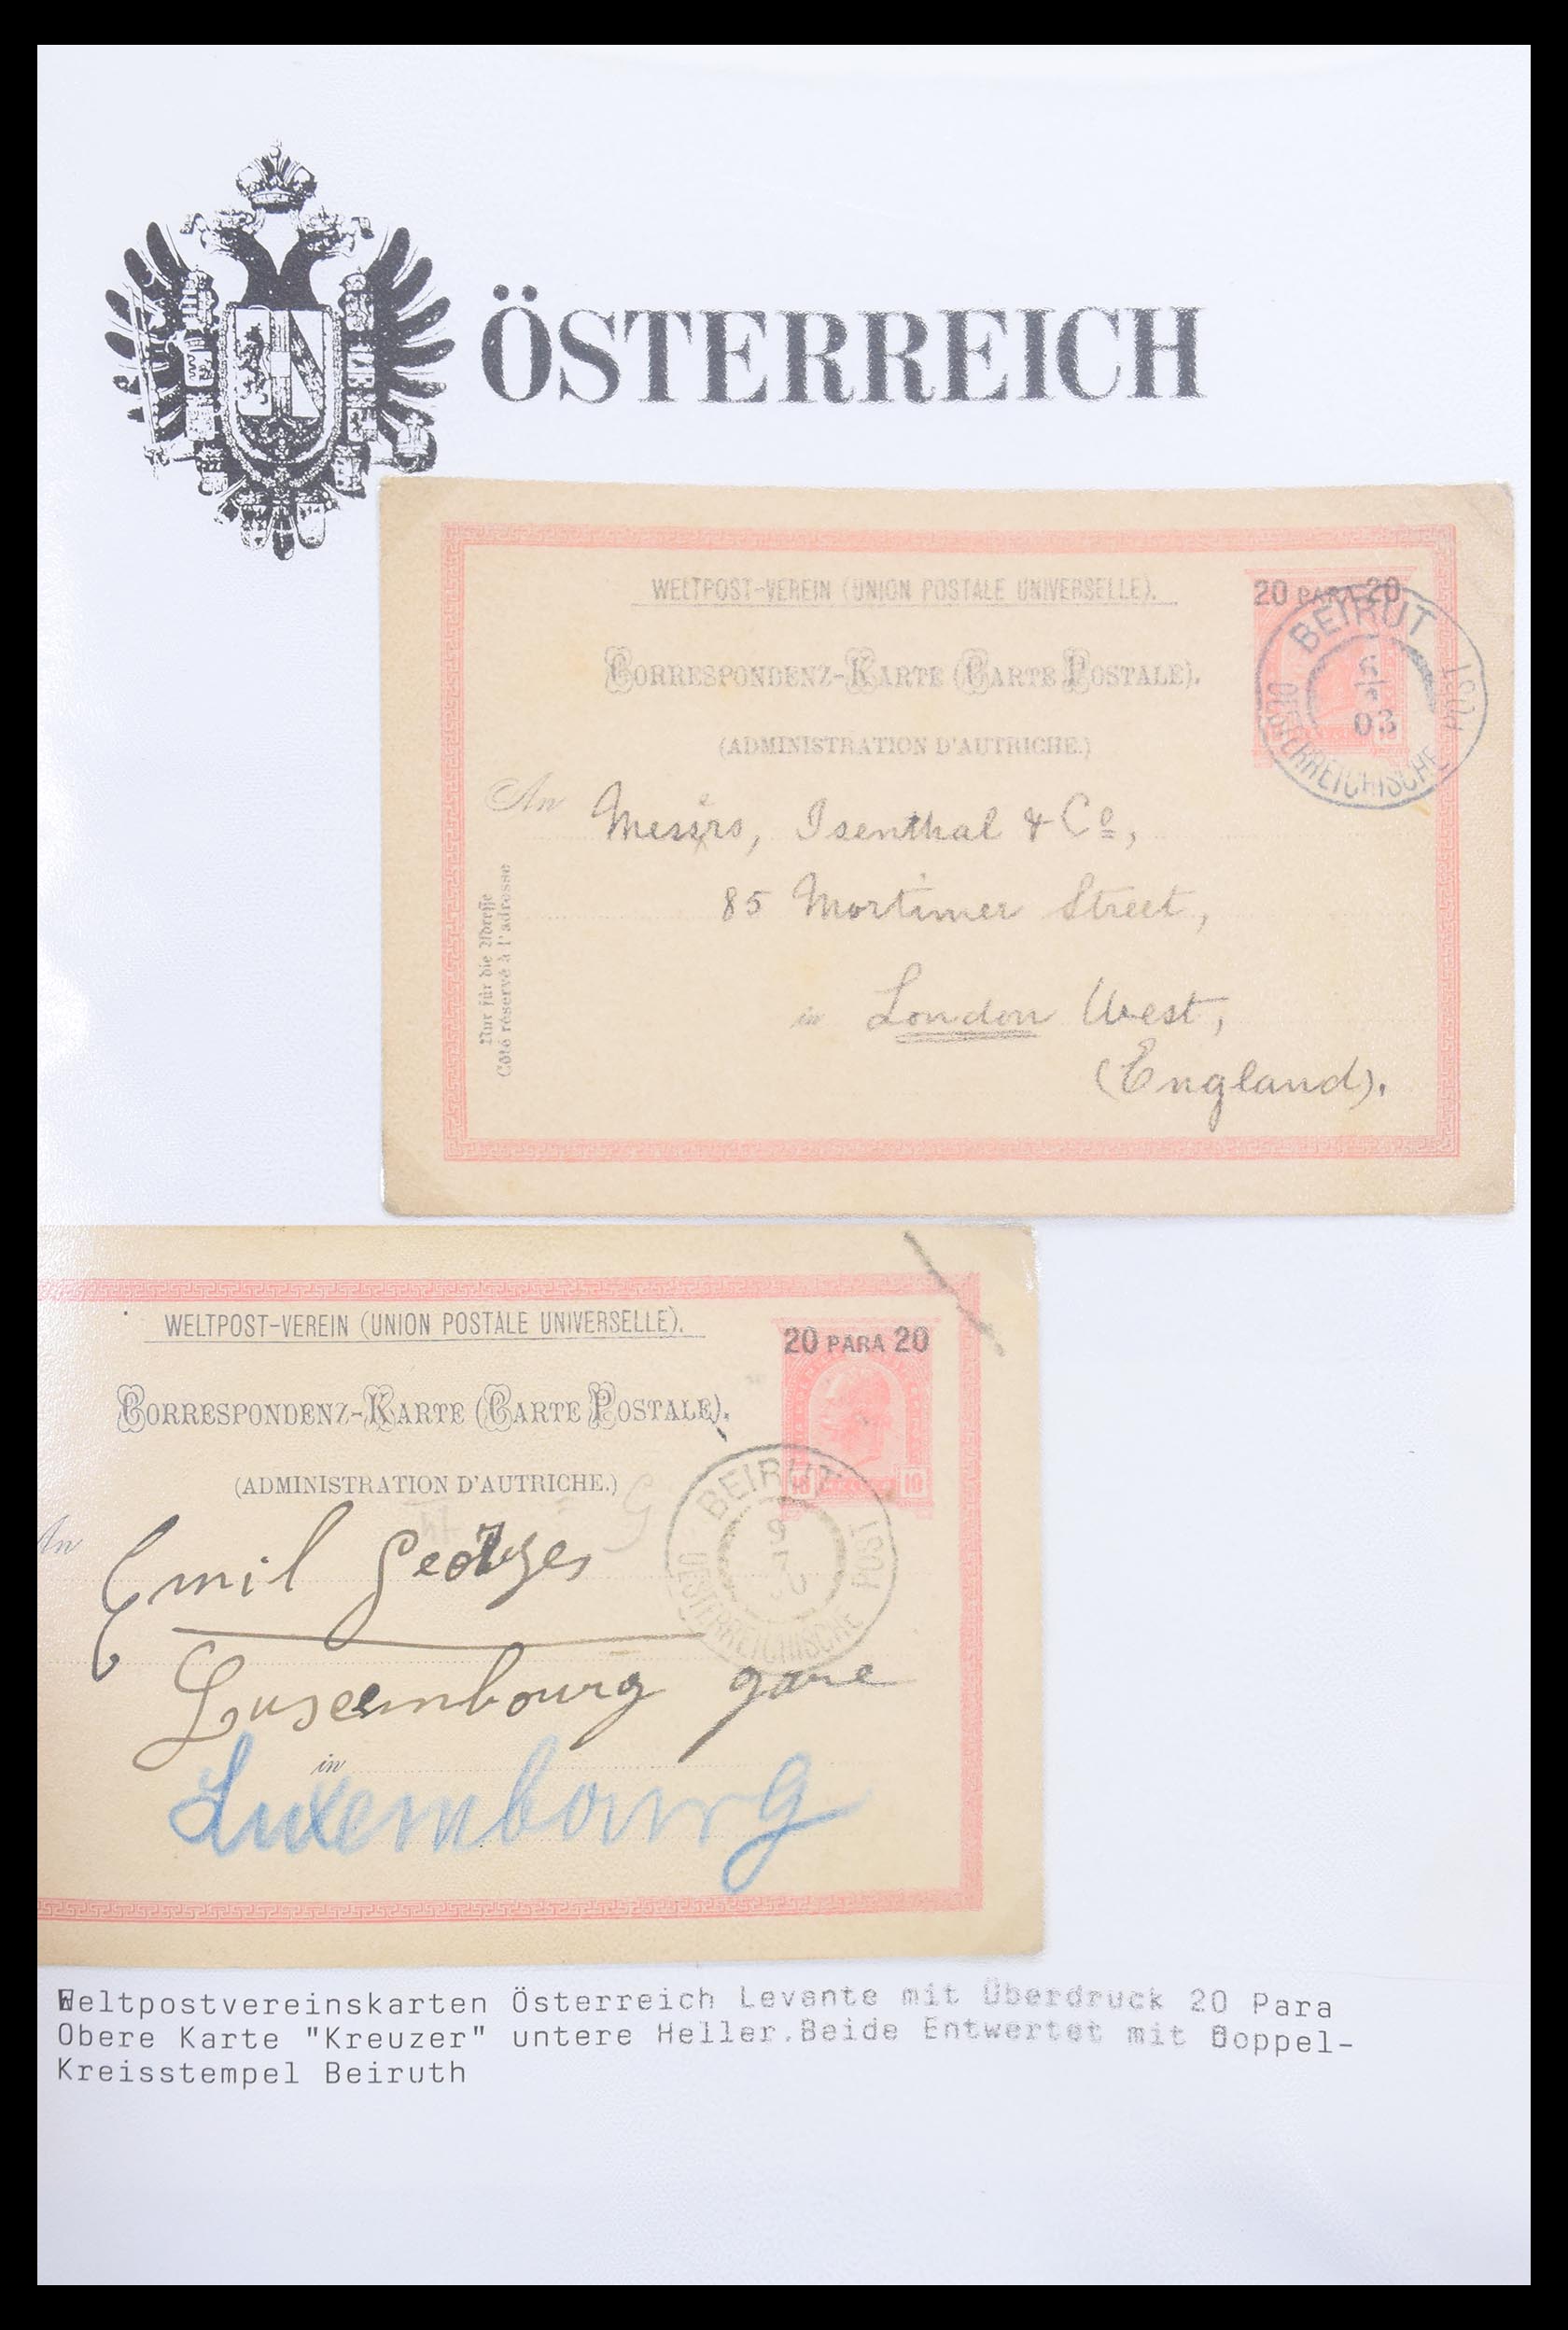 ÖSTERREICH
WELTPOST-VEREIN (UNION POSTALE UNIVERSELLE).
20 PARA 20
CORRESPONDENZ-KARTE (CARTE POSTALE).
BEIRUT
03
OESTERREICHISCHE POST
(ADMINISTRATION D'AUTRICHE.)
An Messrs, Isenthal & Co,
85 Mortimer Street,
in London West,
(England).
Nur für die Adresse
Côté réservé à l'adresse
WELTPOST-VEREIN (UNION POSTALE UNIVERSELLE).
20 PARA 20
CORRESPONDENZ-KARTE (CARTE POSTALE).
10 10
(ADMINISTRATION D'AUTRICHE.)
BEIRUT
OESTERREICHISCHE POST
An Emil Georges
Luxembourg gare
in
Luxembourg
Weltpostvereinskarten Österreich Levante mit Überdruck 20 Para
Obere Karte "Kreuzer" untere Heller.Beide Entwertet mit Doppel-
Kreisstempel Beiruth